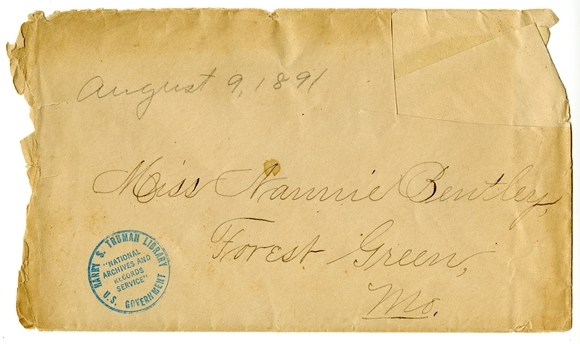 August 9, 1891
Miss Nannie Bentley,
Forest Green,
Mo.
HARRY S. TRUMAN LIBRARY
"NATIONAL
ARCHIVES AND
RECORDS
SERVICE"
U.S. GOVERNMENT